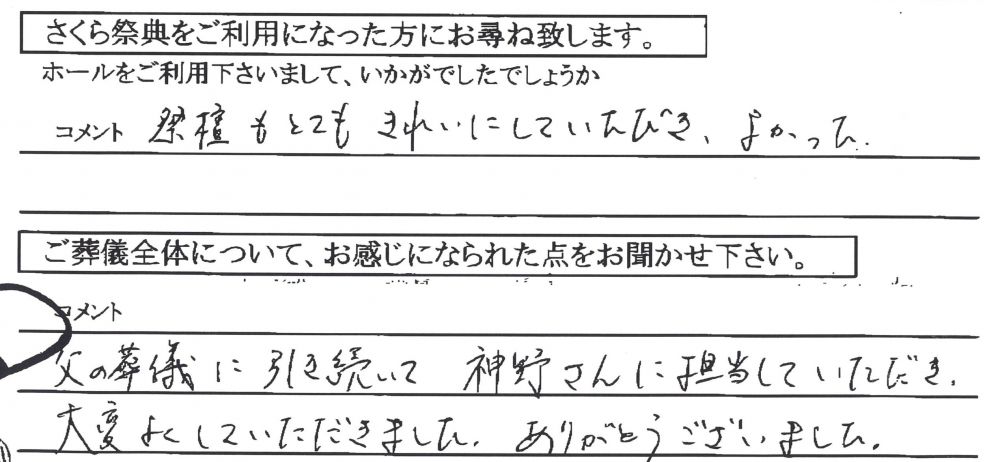 さくら祭典をご利用になった方にお尋ね致します。
ホールをご利用下さいまして、いかがでしたでしょうか
コメント 祭壇もとてもきれいにしていただき、よかった.
ご葬儀全体について、お感じになられた点をお聞かせ下さい。
コメント
父の葬儀に引き続いて 神野さんに担当していただき.
大変よくしていただきました. ありがとうございました.